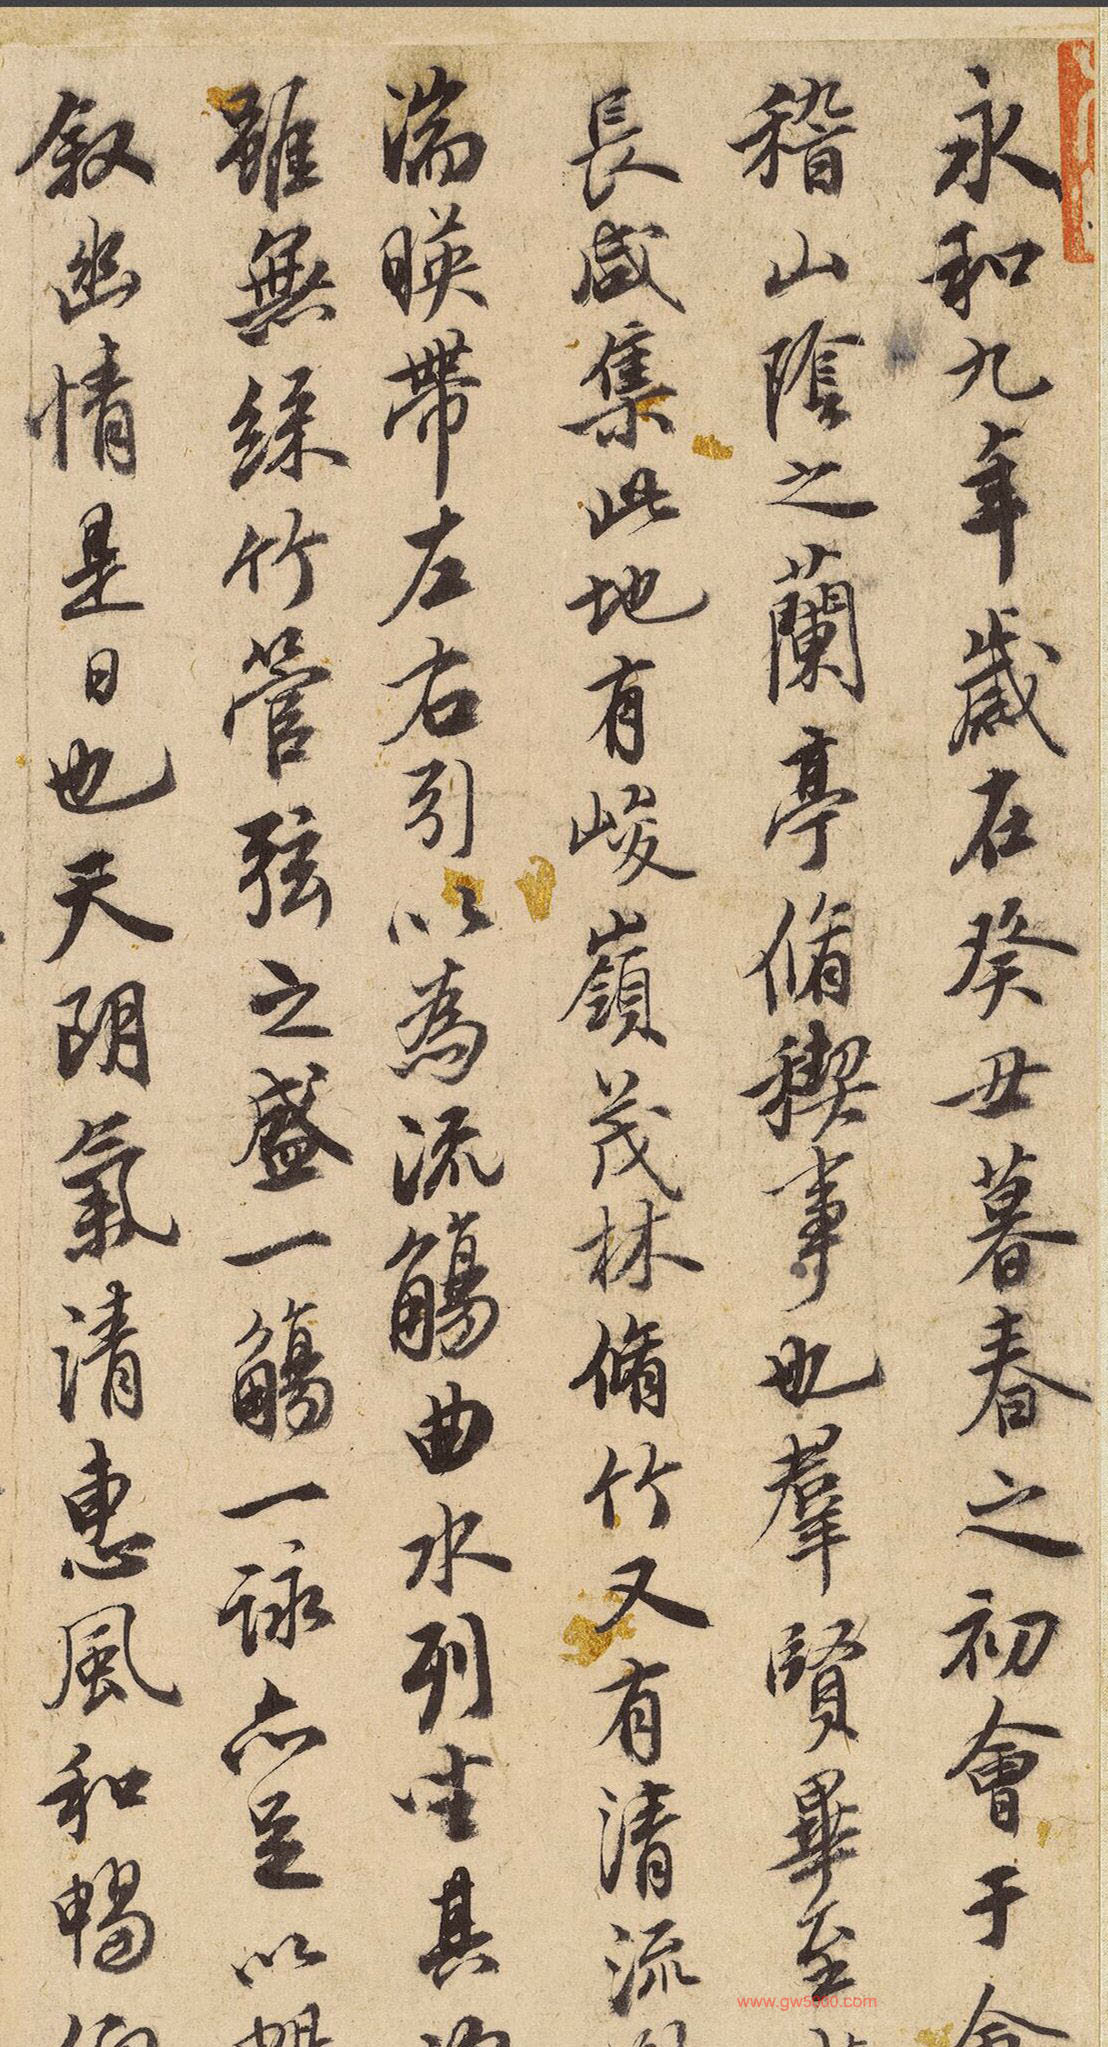 永和九年歲在癸丑暮春之初會于會
稽山陰之蘭亭脩稧事也羣賢畢至
長咸集此地有峻嶺茂林脩竹又有清流
湍暎帶左右引以為流觴曲水列坐其次
雖無絲竹管弦之盛一觴一詠亦足以暢
敘幽情是日也天阴氣清惠風和暢仰
www.gw5000.com